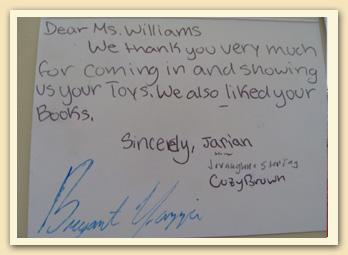 Dear Ms. Williams
We thank you very much
for coming in and showing
us your Toys. We also liked your
Books.
Sincerely, Janian
Cozy Brown
Bryant